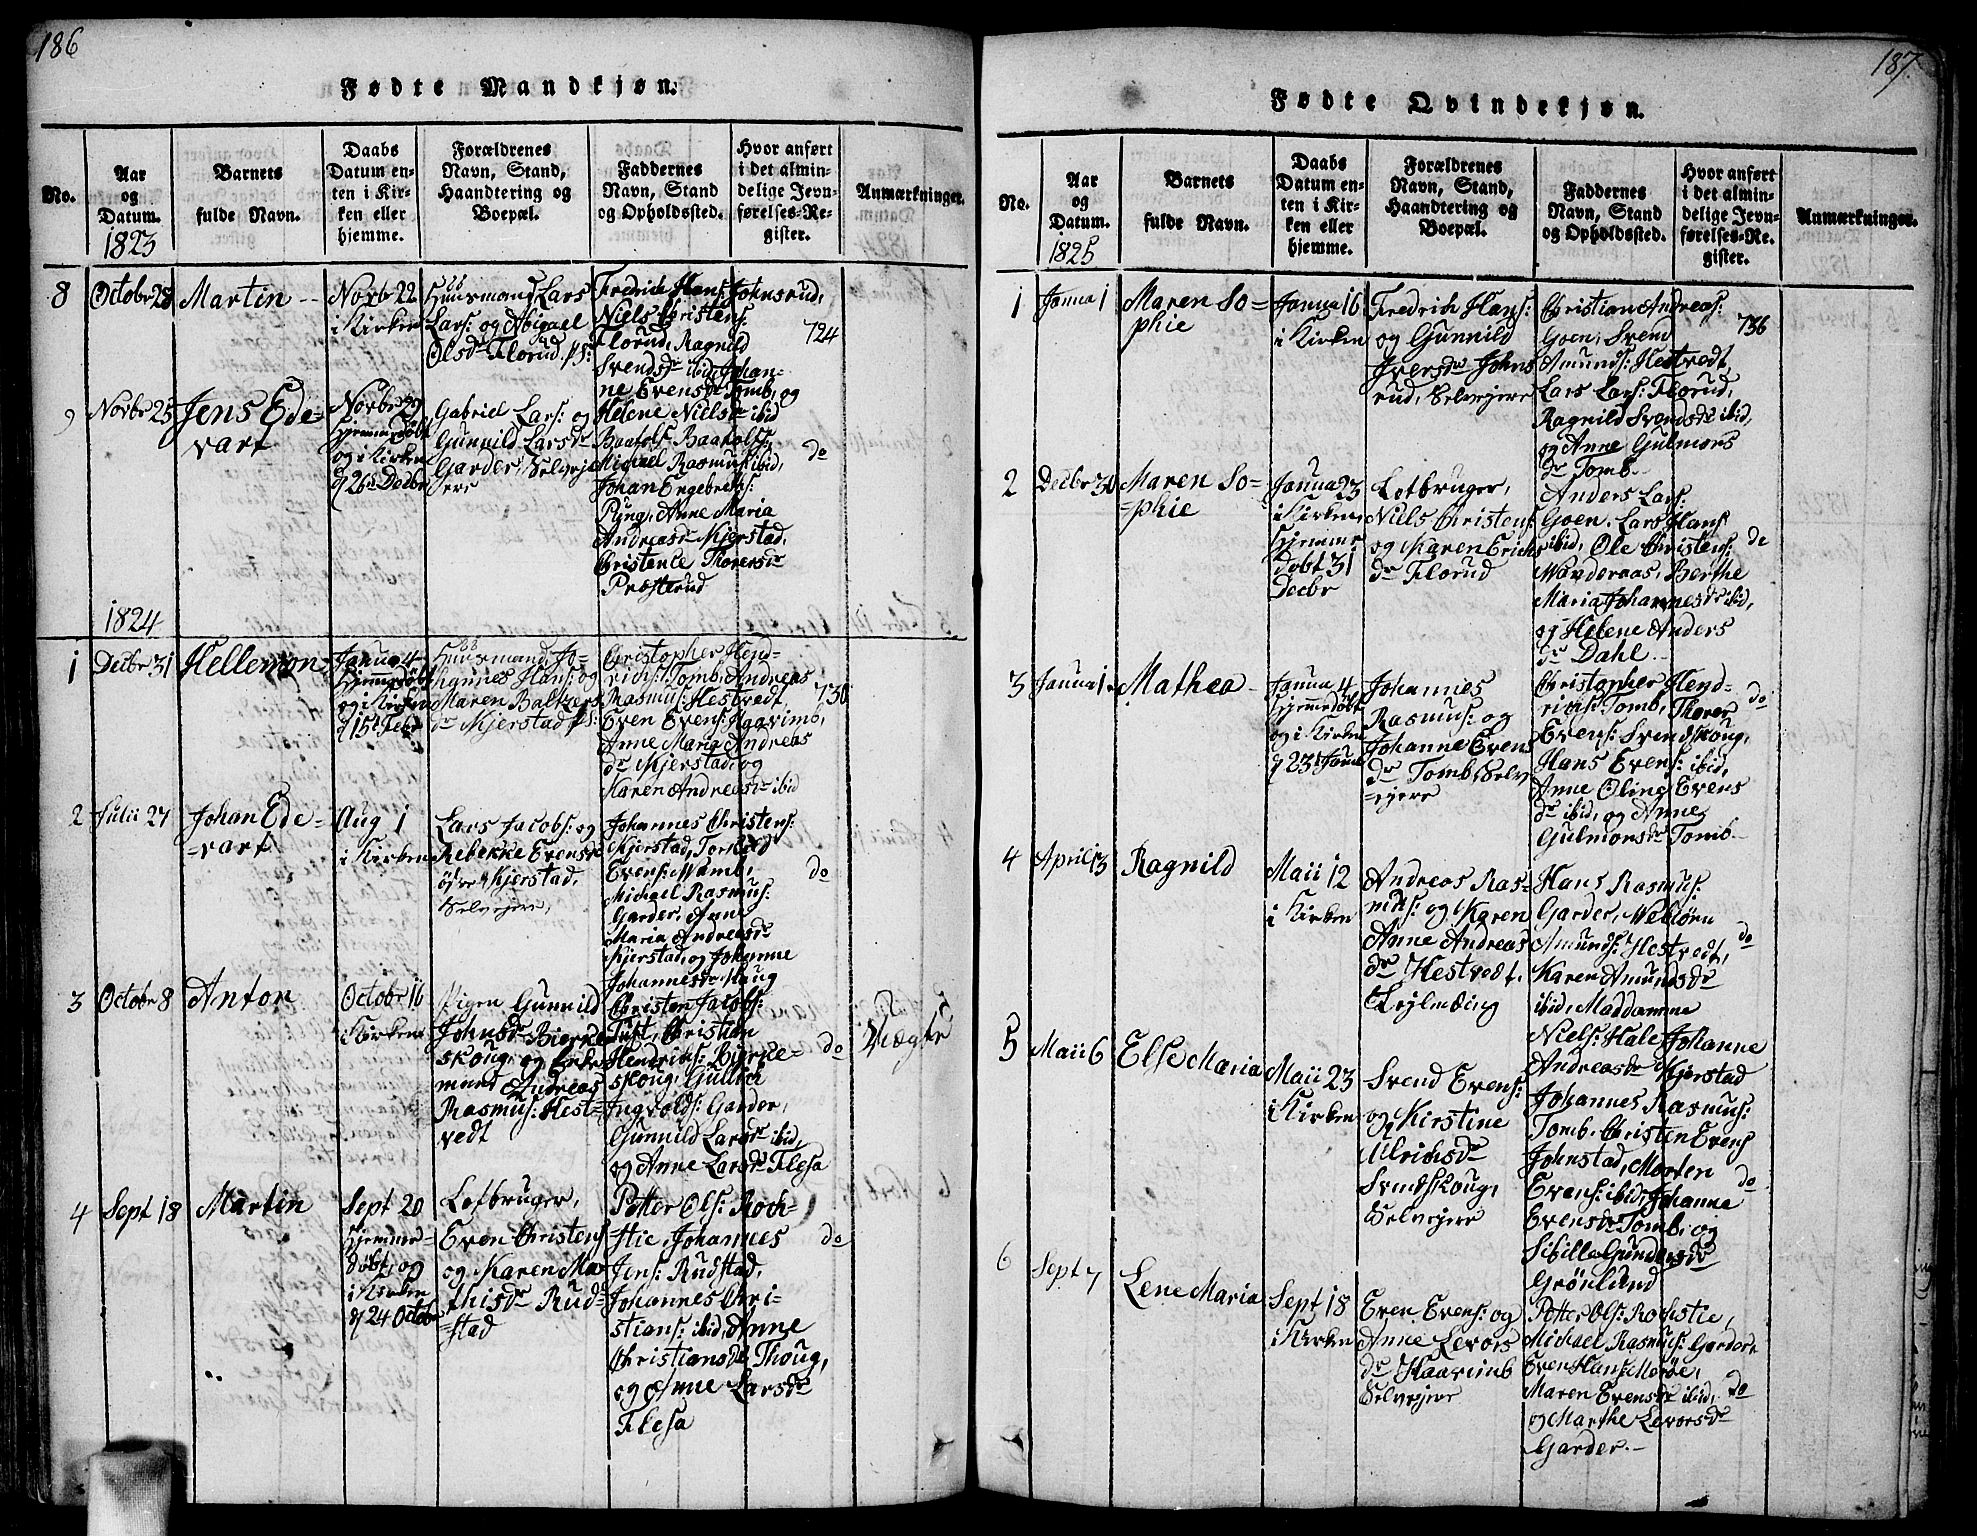 186
Fødte Mandkjøn.
No.
Aar
og
Datum.
1823
Barnets
fulde Navn.
Daabs
Datum en-
ten i Kir-
ken eller
hjemme.
Forældrenes
Navn, Stand,
Haandtering og
Boepæl.
Faddernes
Navn, Stand
og Opholdssted.
Hvor anført
i det almin-
delige Jevn-
førelses-Re-
gister.
Anmærkninger.
8
Octobr 28
Martin --
Novbr 22
i Kirken
Huusmand Lars
Lars: og Abigael
Olsdr Florud, ps:
Fredrich Hans: Johnsrud,
Niels Christens:
Florud, Ragnild
Svendsdr ibid, Johan-
ne Evensdr Tomb, og
Helene Nielsdr ibid
724
9
Novbr 25
Jens Ede-
vart
Novbr 29
hjemmedøbt
og i Kirken
d 26 Decbr
Gabriel Lars: og
Gunnild Larsdr
Garder, Selveje
ere
Baatols Baatols:
Michael Rasmus: ibid,
Johan Engebrets:
Pung, Anne Maria
Andreasdr Kjerstad,
Christence Thorersdr
Præsterud
do
1824
1
Decbr 31
Hellemon
Janua 4
hjemmedøbt
og i Kirken
d 15 Febr
Huusmand Jo-
hannes Hans: og
Maren Baltzers
dr Kjerstad ps:
Christopher Hend-
richs: Tomb, Andreas
Rasmus: Hestvedt,
Even Evens: Haavimb,
Anne Maria Andreas
dr Kjerstad, og
Karen Andreasdr ibid
730
2
Julii 27
Johan Ede-
-vart
Aug 1
i Kirken
Lars Jacobs: og
Rebekke Evensdr
øfre Kjerstad,
Selvejere,
Johannes Christens:
Kjerstad, Torkild
Evens: Wamb,
Michael Rasmus:
Garder, Anne
Maria Andreasdr
Kjerstad, og Johanne
Johannesdr Haug
do
3
Octobr 8
Anton
Octobr 16
i Kirken
Pigen Gunnild
Johnsdr Bierke
skoug, og Enke
mand Andreas
Rasmus: Hest-
vedt
Christen Jacobs:
Tuft, Christian
Hendrichs: Bjerke-
skoug, Gullich
Ingvolds: Garder,
Gunnild Larsdr ibid,
og Anne Larsdr Flesa
do
Uægte
4
Sept 18
Martin
Sept 20
hjemme-
døbt, og
i Kirken
d 24 Octobr
Lotbruger,
Even Christens
og Karen Ma
thisdr Rud-
-stad
Petter Ols: Roch-
stie, Johannes
Jens: Rudstad,
Johannes Chri-
stians: ibid, Anne
Christiansdr Thoug,
og Anne Larsdr
Flesa
do
187.
Fødte Qvindekjøn.
No.
Aar
og
Datum.
1825
Barnets
fulde Navn.
Daabs
Datum en-
ten i Kir-
ken eller
hjemme.
Forældrenes
Navn, Stand,
Haandtering og
Boepæl.
Faddernes
Navn, Stand
og Opholdssted.
Hvor anført
i det almin-
delige Jevn-
førelses-Re-
gister.
Anmærkninger.
1
Janua 1
Maren So-
phie
Janua 16
i Kirken
Fredrich Hans:
og Gunnild
Iversdr Johns
rud, Selvejere
Christian Andreas:
Goen, Svend
Amunds: Hestvedt,
Lars Lars: Florud,
Ragnild Svendsdr ibid,
og Anne Gulmors
dr Tomb.
736
2
Decbr 30
Maren So-
-phie
Janua 23
i Kirken,
hjemme
døbt 31
Decbr
Lotbruger,
Niels Christens:
og Karen Erichs
dr Florud
Anders Lars:
Goen, Lars Hans
ibid, Ole Christens:
Wanderaas, Berthe
Maria Johannesdr ibid,
og Helene Anders
dr Dahl.
do
3
Janua 1
Mathea
Janua 4
hjemmedøbt
og i Kirken
d 23 Janua
Johannes
Rasmus: og
Johanne Evens
dr Tomb, Selv
-ejere
Christopher Hend-
richs: Tomb, Thorer
Evens: Svendskoug,
Hans Evens: ibid,
Anne Oline Evens
dr ibid, og Anne
Gulmorsdr Tomb
do
4
April 13
Ragnild
Maii 12
i Kirken
Andreas Ras-
mus: og Karen
Anne Andreas
dr Hestvedt,
Lejlænding
Hans Rasmus:
Garder, Webiørn
Amunds: Hestvedt,
Karen Amundsdr
ibid, Maddamme
Niels: Hale, Johanne
Andreasdr Kjerstad
do
5
Maii 6
Else Maria
Maii 23
i Kirken
Svend Evens:
og Kirstine
Ulrichsdr
Svendskoug,
Selvejere
Johannes Rasmus:
Tomb, Christen Evens
Johnstad, Morten
Evens: ibid, Johanne
Evensdr Tomb, og
Sibilla Gundersdr
Grönlund
do
6
Sept 7
Lene Maria
Sept 18
i Kirken
Even Evens: og
Anne Levors
dr Haavimb
Selvejere
Petter Ols: Rochstie,
Michael Rasmus: Garder,
Even Hans: Moröe,
Maren Evensdr ibid,
og Marthe Levorsdr
Garder.
do